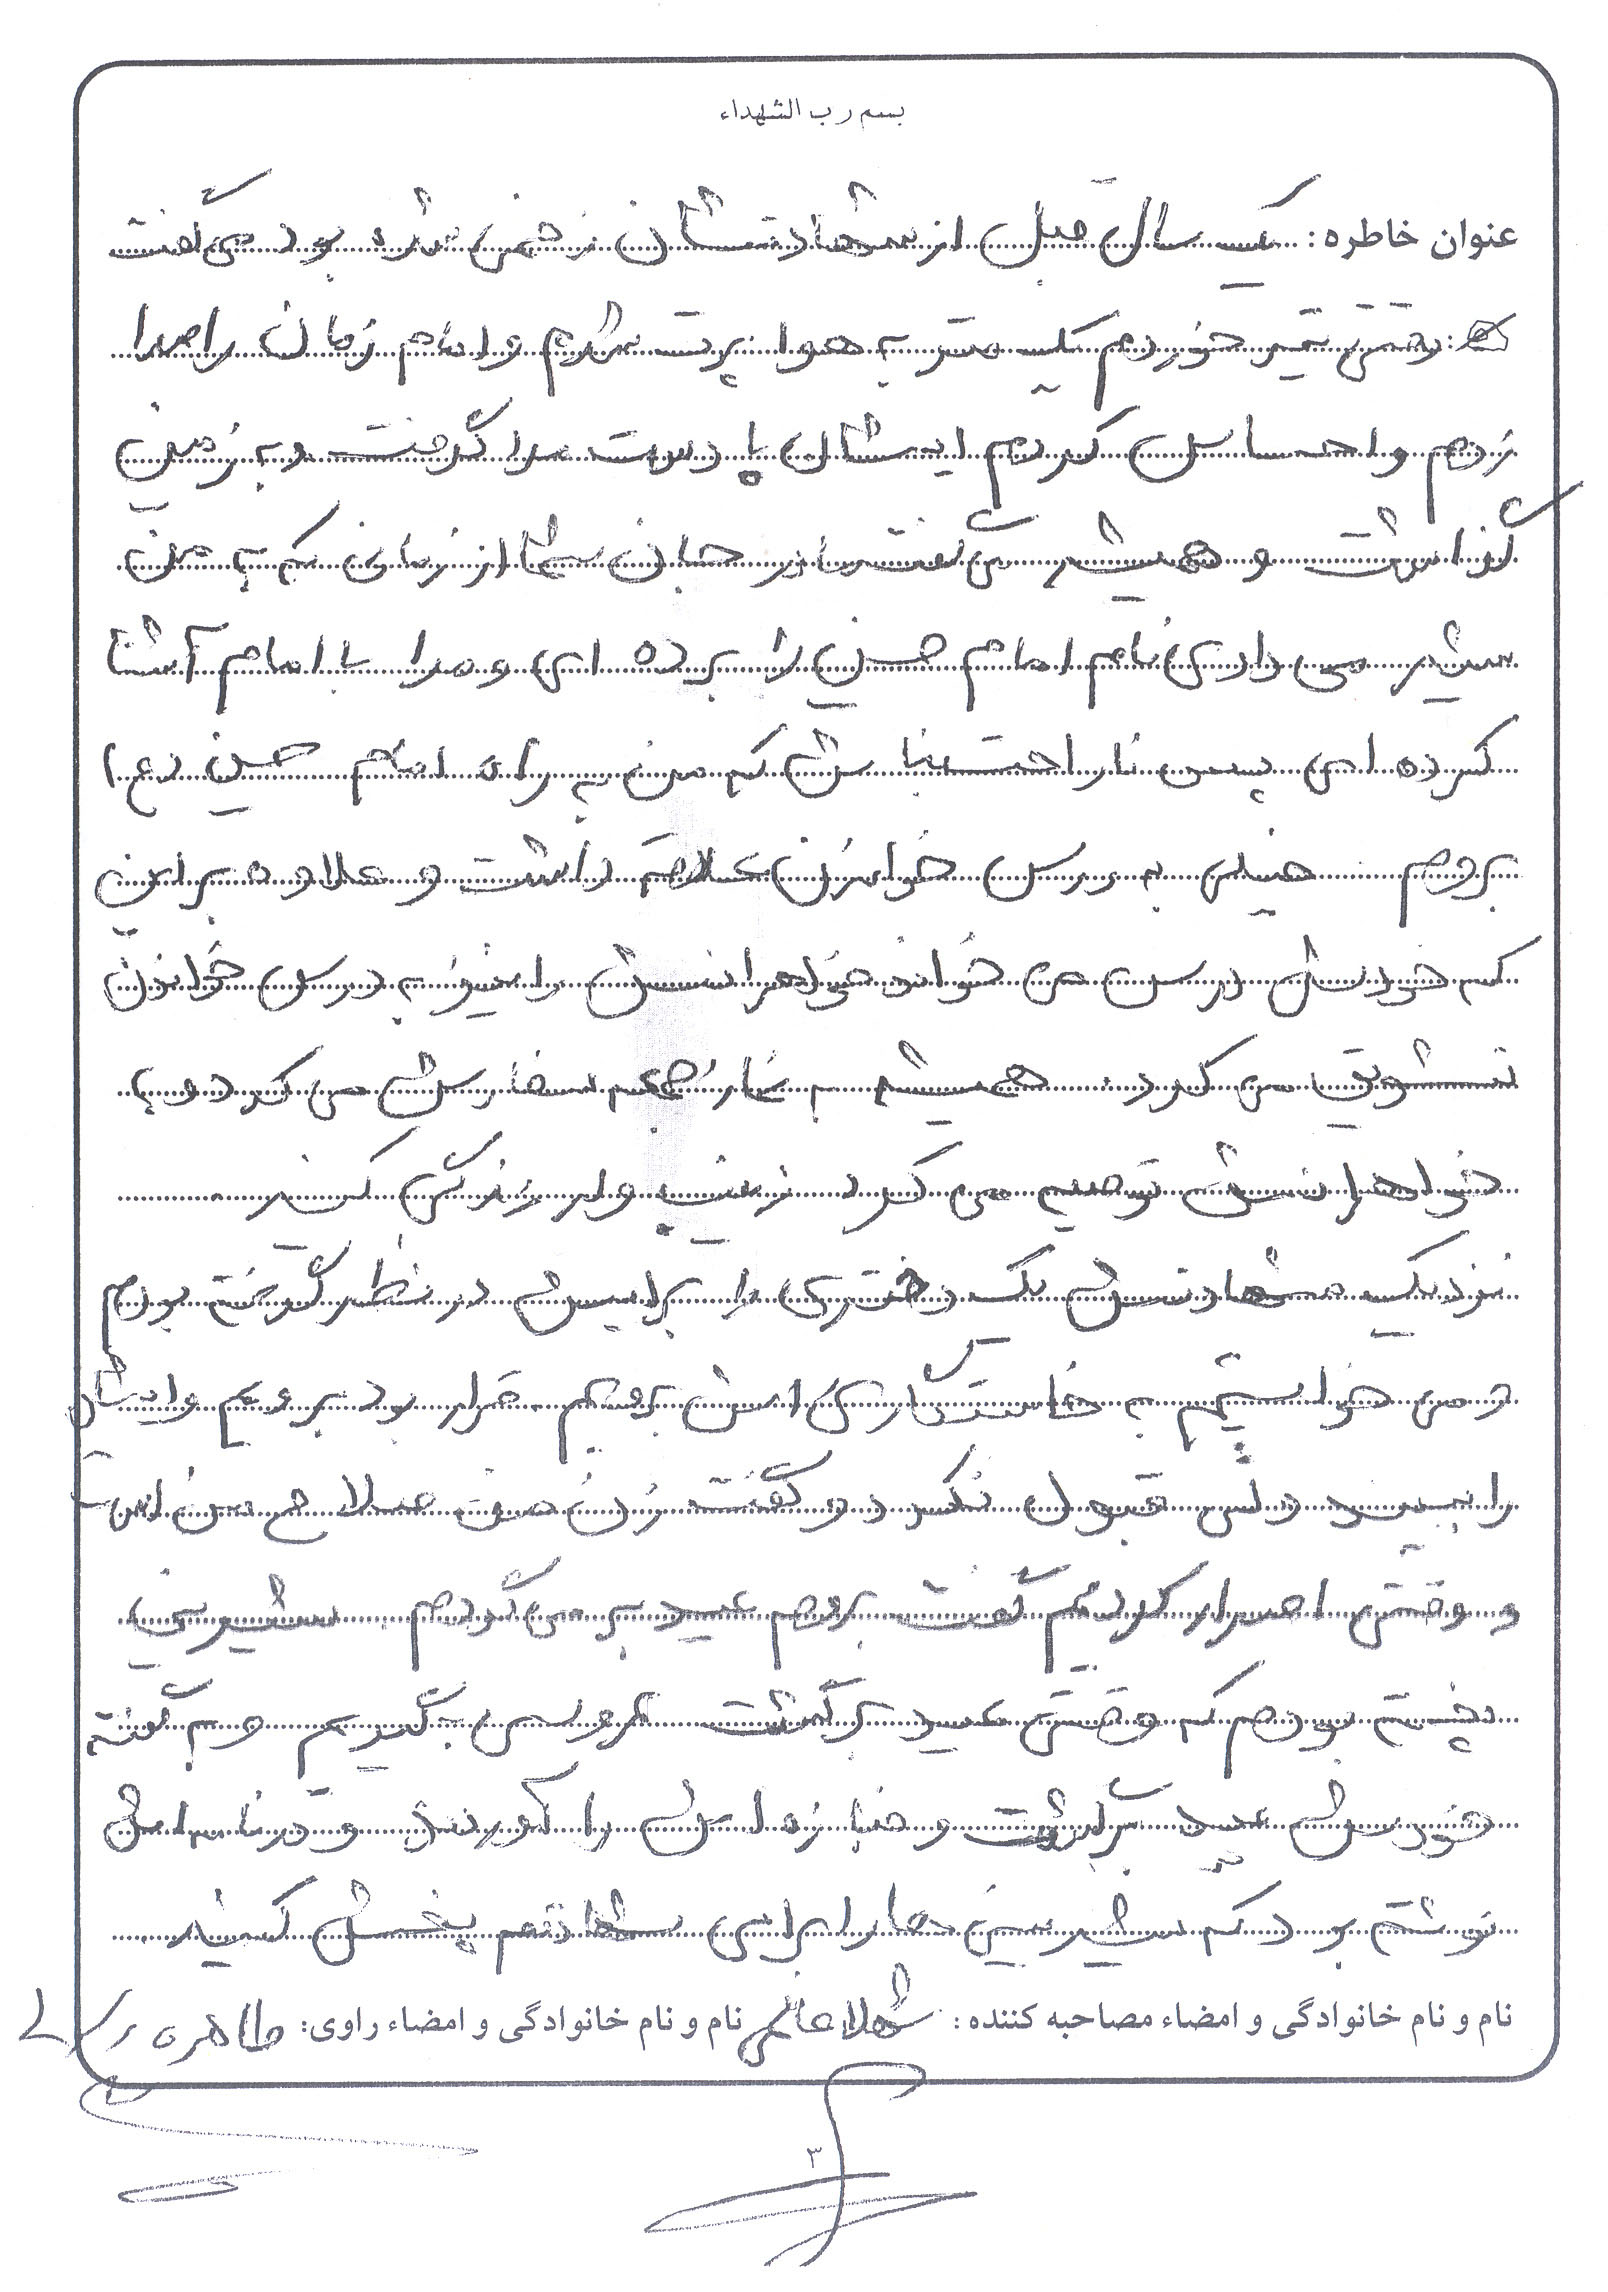 بسم رب الشهداء
عنوان خاطره: یک سال قبل از شهادتشان زخمی شده بود می گفت
وقتی تیر خوردم یک متر به هوا پرت شدم و امام زمان را صدا
زدم و احساس کردم ایشان با دست مرا گرفت و به زمین
گذاشت و همیشه می گفت مادر جان شما از زمانی که به من
شیر می دادی نام امام حسین را برده ای و مرا با امام آشنا
کرده ای پس ناراحت نباش که من به راه امام حسین (ع)
بروم خیلی به درس خواندن علاقه داشت و علاوه بر این
که خودش درس می خواند خواهرانش را نیز به درس خواندن
تشویق می کرد. همیشه به نماز جمعه سفارش می کرد و به
خواهرانش توصیه می کرد زینب وار زندگی کنید
نزدیک شهادتش یک دختری را برایش در نظر گرفته بودم
و می خواستیم به خاستگاری اش برویم. قرار بود برویم و ایشان
را ببیند ولی قبول نکرد و گفت زن من سلاح من است
و وقتی اصرار کردیم گفت بروم عید بر می گردم شیرینی
پخته بودم که وقتی عید برگشت عروسی بگیریم و به گفته
خودش عید برگشت و جنازه اش را آوردند و در نامه اش
نوشته بود که شیرینی ها را برای شهادتم پخش کنید
نام و نام خانوادگی و امضاء مصاحبه کننده: شهلا نام و نام خانوادگی و امضاء راوی: طاهره
۳